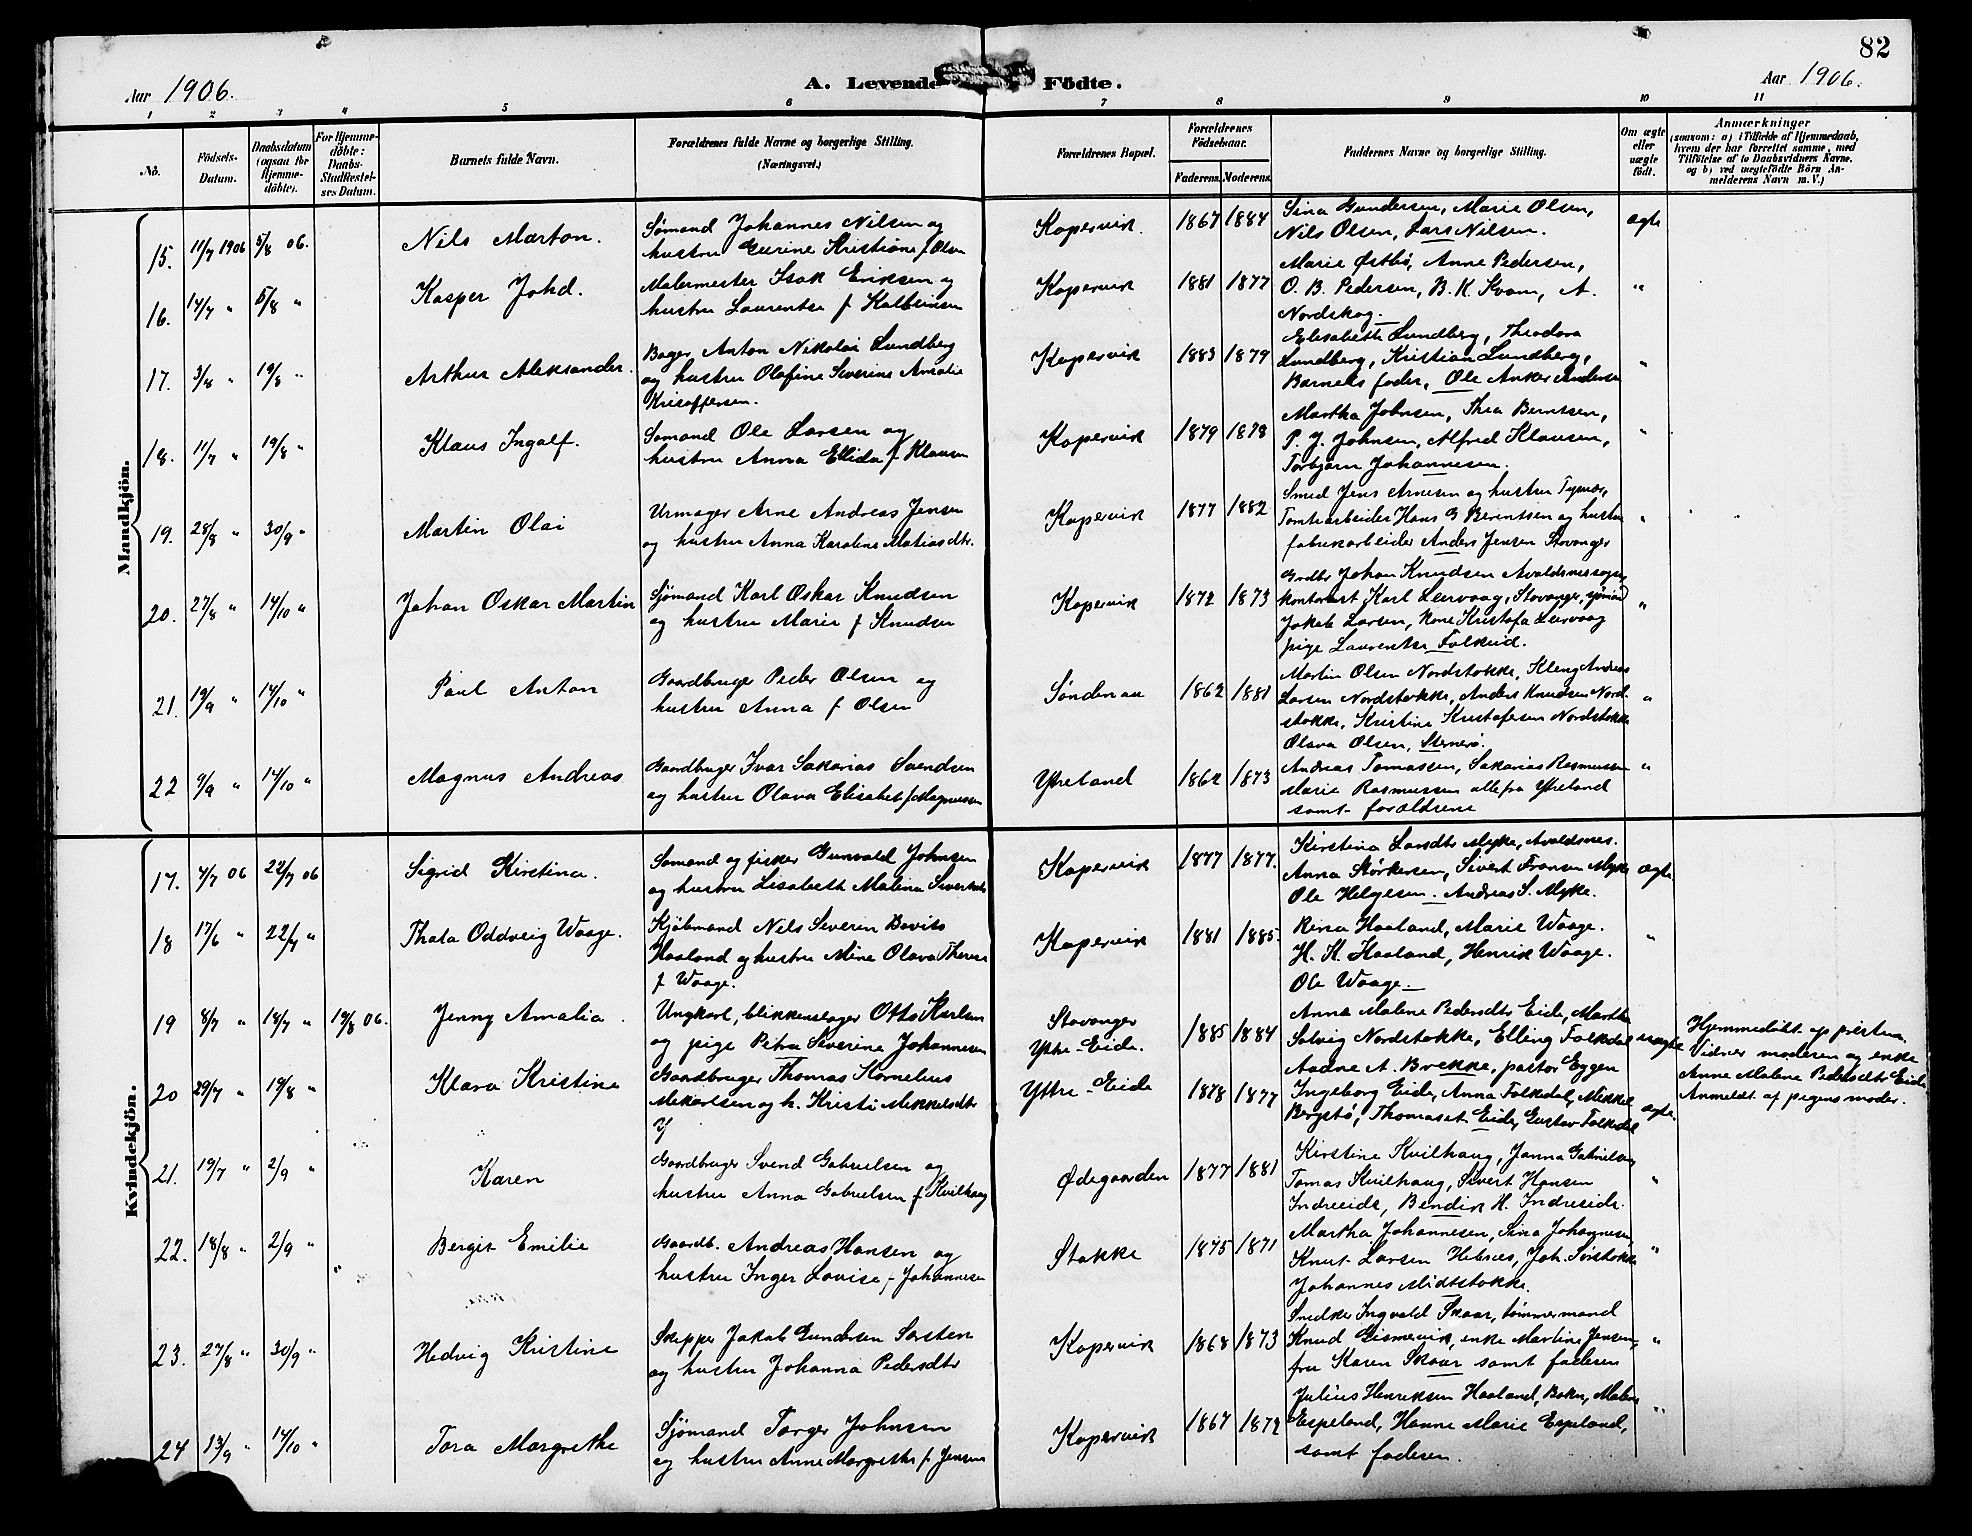 82
Aar 1906.
A. Levende Födte.
Aar 1906.
1 2 3 4 5 6 7 8 9 10 11
No.
Födsels-Datum.
Daabsdatum (ogsaa for Hjemmedöbte).
For Hjemmedöbte: Daabs-Stadfæstelses Datum.
Barnets fulde Navn.
Forældrenes fulde Navne og borgerlige Stilling. (Næringsvei.)
Forældrenes Bopæl.
Forældrenes Födselsaar.
Faderens. Moderens.
Faddernes Navne og borgerlige Stilling.
Om ægte eller uægte födt.
Anmærkninger
(saasom: a) i Tilfælde af Hjemmedaab, hvem der har forrettet samme, med Tilföielse af to Daabsvidners Navne. og b) ved uægtefödte Börn Anmelderens Navn m. V.)
Mandkjön.
15. 11/7 1906 5/8 06. Nils Marton.
Sømand Johannes Nilsen og
hustru Gurine Kristiane f Olsen
Kopervik. 1867 1884
Sina Gundersen, Marie Olsen,
Nils Olsen, Lars Nilsen.
ægte
16. 14/7 " 5/8 " Kasper Johd.
Malermester Isak Eriksen og
hustru Laurentse f Kolbeinsen
Kopervik 1881 1877
Marie Østbø, Anne Pedersen,
O. B. Pedersen, B. K. Kvam, A.
Nordskog.
"
17. 3/8 " 19/8 " Arthur Aleksander.
Bager Anton Nikolai Lundberg
og hustru Olafine Severine Amalie
Kristoffersen.
Kopervik 1883 1879
Elisabeth Lundberg, Theodora
Lundberg, Kristian Lundberg,
Barnets fader, Ole Anker Andersen
"
18. 11/7 " 19/8 " Klaus Ingolf.
Sømand Ole Larsen og
hustru Anna Ellida f Klausen
Kopervik 1879 1878
Martha Johnsen, Thea Berntsen,
P. J. Johnsen, Alfred Klausen,
Torbjørn Johannesen.
"
19. 28/8 " 30/9 " Martin Olai
Urmager Arne Andreas Jensen
og hustru Anna Karoline Matiasdtr.
Kopervik 1877 1882
Smed Jens Arnesen og hustru Tysvær,
Tomtearbeider Hans G Berentsen og hustru
fabrikarbeider Anders Jensen Stavanger
"
20. 27/8 " 14/10 " Johan Oskar Martin
Sjømand Karl Oskar Knudsen
og hustru Marie f Knudsen
Kopervik 1872 1873
Grdbr Johan Knudsen Avaldsnes sogn,
kontorist Karl Leervaag, Stavanger, sjømand
Jakob Larsen, kone Kristofa Leervaag
pige Laurentse Folkeid.
"
21. 19/9 " 14/10 " Paul Anton
Gaardbruger Peder Olsen og
hustru Anna f Olsen
Søndenaa 1862 1881
Martin Olsen Nordstokke, Kleng Andreas
Larsen Nordstokke, Anders Knudsen Nord-
stokke, Kristine Kristofersen Nordstokke
Olava Olsen, Sternerø.
"
22 9/9 " 14/10 " Magnus Andreas
Gaardbruger Ivar Sakarias Svendsen
og hustru Olava Elisabet f. Magnussen
Ytreland 1862 1873
Andreas Tomassen, Sakarias Rasmussen
Marie Rasmussen alle fra Ytreland
samt forældrene
"
Kvindekjön.
17. 4/7 06 22/7 06 Sigrid Kirstina.
Sømand og fisker Gunvald Johnsen
og hustru Lisabeth Malena Sivertsdtr
Kopervik 1877 1877.
Kirstina Larsdtr Myke, Avaldsnes.
Anna Størkersen, Sivert Fransen Myke
Ole Helgesen. Andreas S. Myke.
ægte.
18 17/6 " 22/7 " Thala Oddveig Waage.
Kjøbmand Nils Severin Bovits
Haaland og hustru Mine Olava Therese
f Waage.
Kopervik 1881 1885.
Rina Haaland, Marie Waage.
H. K. Haaland, Henrik Waage.
Ole Waage.
"
19 8/7 " 18/7 " 19/8 06. Jenny Amalia.
Ungkarl, blikkenslager Otto Karlsen
og pige Petra Severine Johannesen
Stavanger
Ytre-Eide. 1885 1884
Anna Malene Pedersdtr Eide, Martha
Solvig Nordstokke, Elling Folkedal
Aadne A. Brekke, pastor Eggen
uægte
Hjemmedøbt af presten
Vidner moderen og enke
Anne Malene Pedersdtr Eide
Anmeldt af pigens moder.
20 29/7 " 19/8 " Klara Kristine
Gaardbruger Thomas Kornelius
Mikalsen og h. Kristi Mikkelsdtr
Ytre-Eide 1878 1877
Ingeborg Eide, Anna Folkedal, Mikkel
Bergstø, Thomas Eide, Gustav Folkedal
ægte.
21. 19/7 " 2/9 " Karen
Gaardbruger Svend Gabrielsen og
hustru Anna Gabrielsen f Kvilhaug
Ødegaarden 1877 1881
Kirstine Kvilhaug, Janna Gabrielsen
Tomas Kvilhaug, Sivert Hansen
Indreeide, Bendik H. Indreeide.
"
22. 18/8 " 2/9 " Bergit Emilie
Gaardb. Andreas Hansen og
hustru Inger Lovise f. Johannesen
Stokke 1875 1871
Martha Johannesen, Sina Johannesen
Knut Larsen Hebnes, Joh. Sørstokke
Johannes Midtstokke.
"
23. 27/8 " 30/9 " Hedvig Kristine
Skipper Jakob Gundersen Sørsten
og hustru Johanna Pedersdtr
Kopervik 1868 1873
Snedker Ingvald Skaar, tømmermand
Knud Gismervik, enke Martine Jensen,
fru Karen Skaar samt faderen
"
24 13/9 " 14/10 " Tora Margrethe
Sjømand Torger Johnsen
og hustru Anne Margrethe f Jensen
Kopervik 1867 1872
Julius Henriksen Haaland, Bokn, Malene
Espeland, Hanne Marie Espeland,
samt faderen.
"